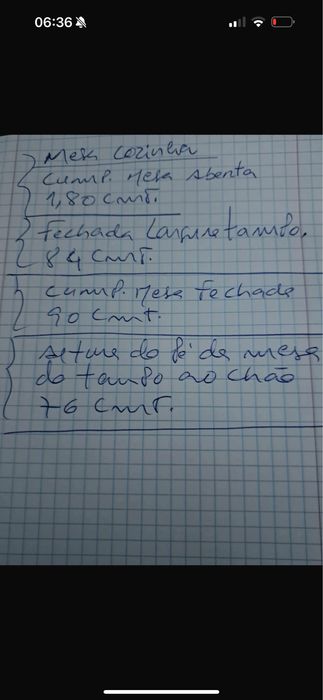 06:36
Mesa cozinha
Cump. Mesa Aberta
1,80 cmt.
Fechada Largura tampo.
84 cmt.
Cump. Mesa Fechada
90 cmt.
Altura do pé da mesa
do tampo ao chão
76 cmt.